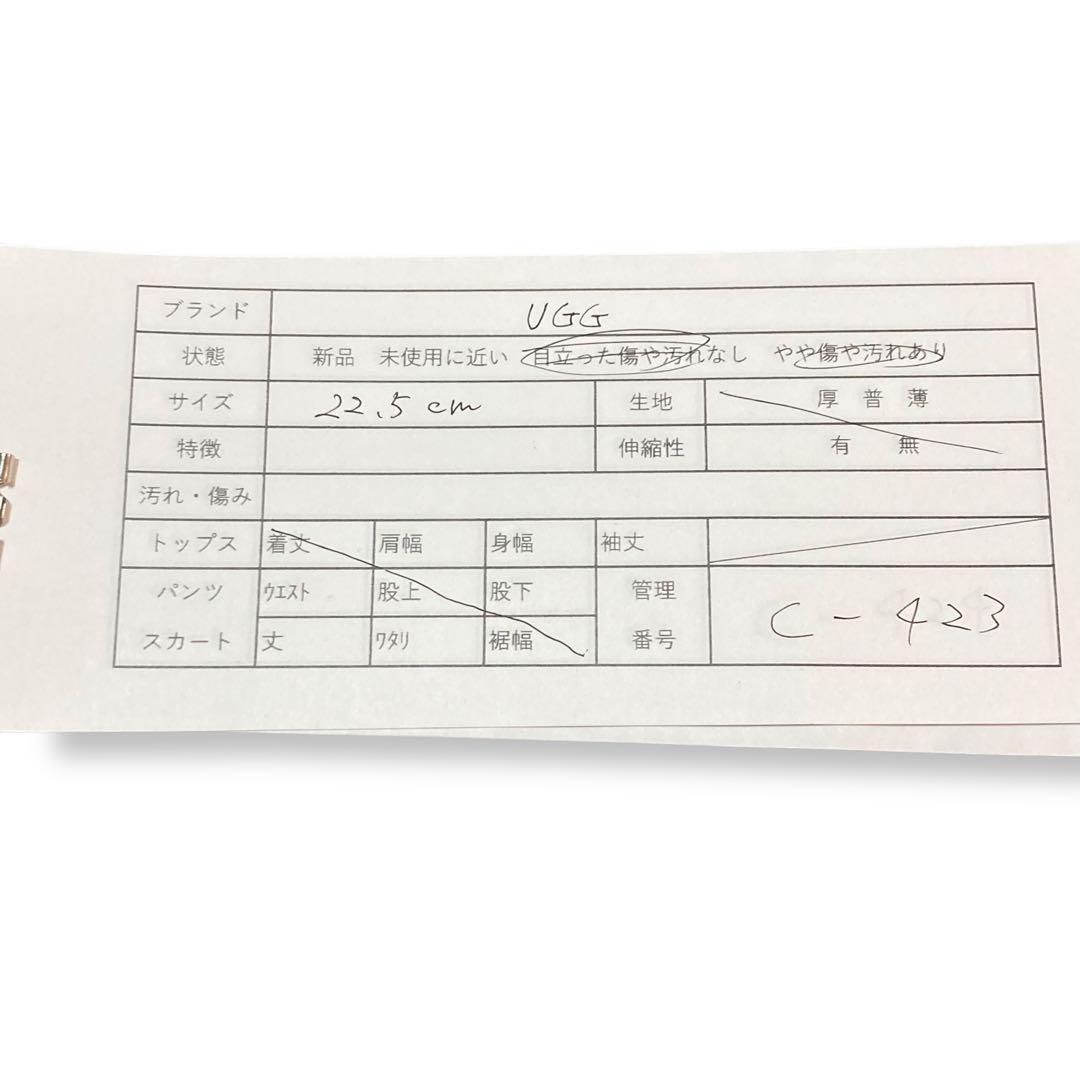 ブランド UGG
状態 新品 未使用に近い 目立った傷や汚れなし やや傷や汚れあり
サイズ 22.5cm 生地 厚 普 薄
特徴 伸縮性 有 無
汚れ・傷み
トップス 着丈 肩幅 身幅 袖丈
パンツ ウエスト 股上 股下 管理
スカート 丈 ワタリ 裾幅 番号 C-423